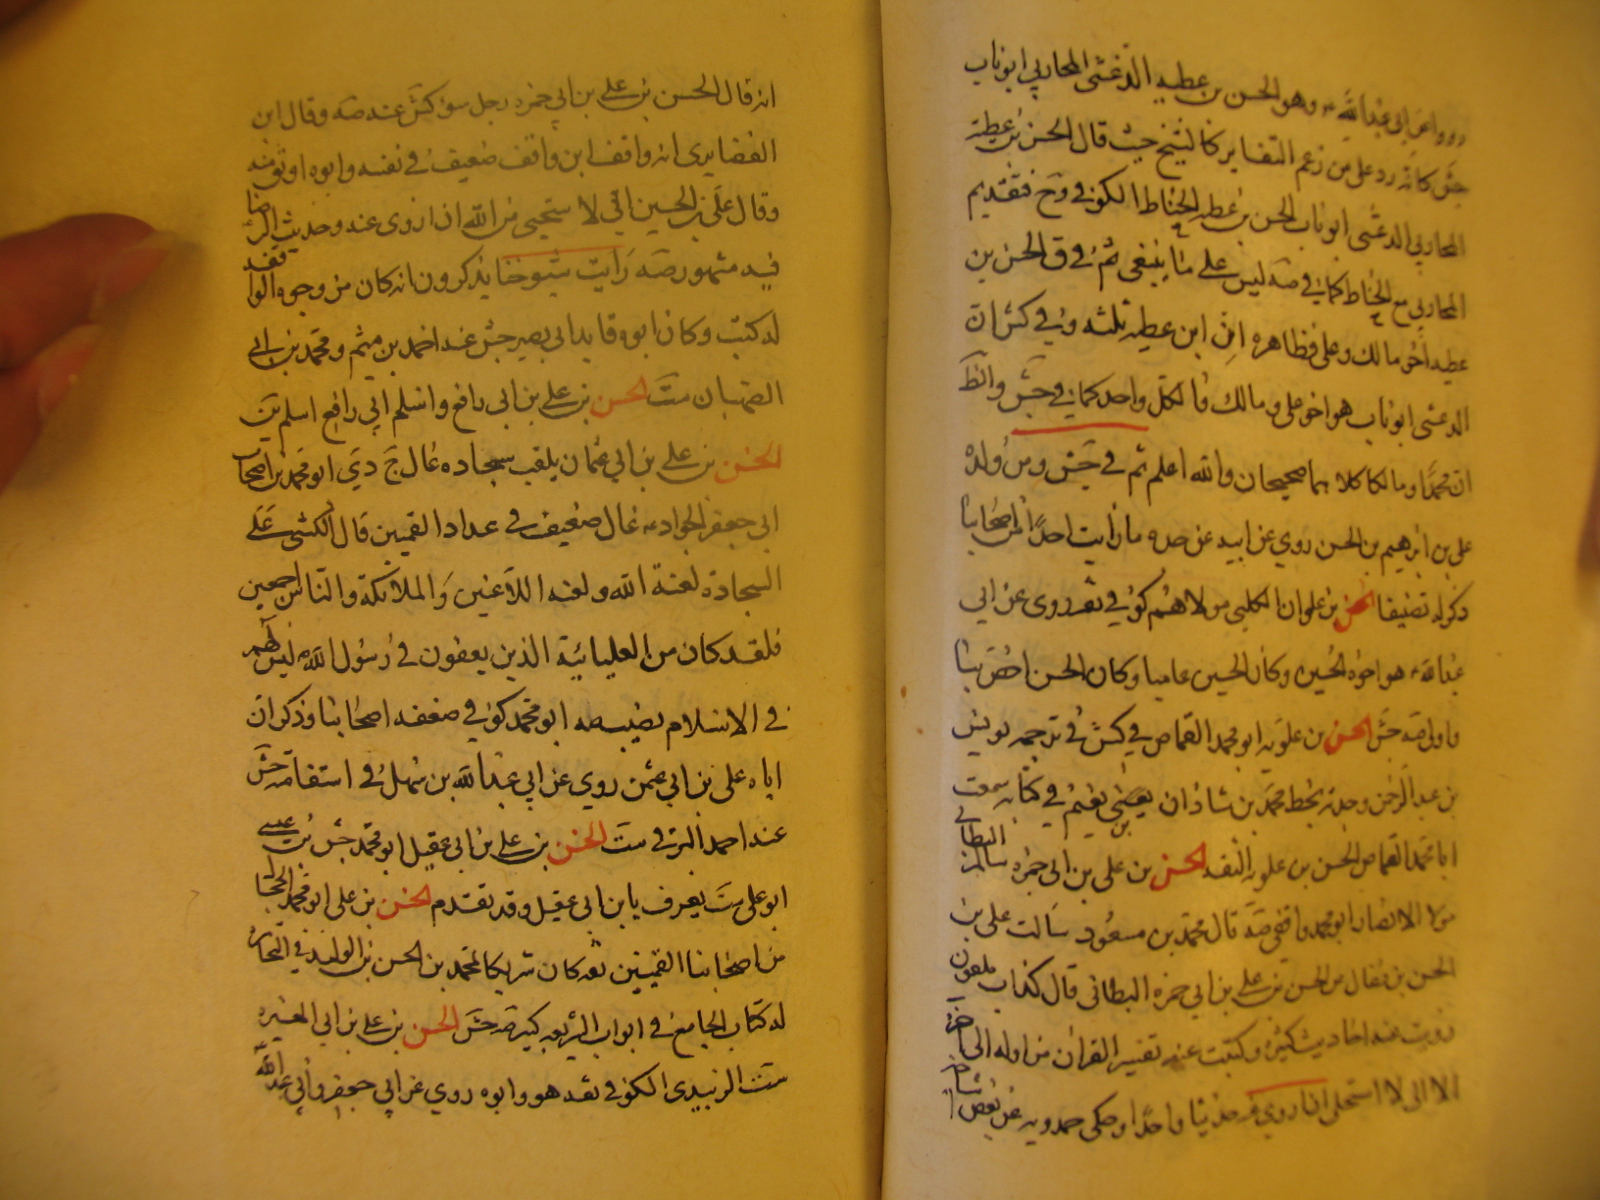 رووا عن ابي عبد الله ع وهو الحسن بن عطيه الدغشى المحاربي ابو ناب
جش كانه رد على من زعم التغاير كالشيخ حيث قال الحسن بن عطية
المحاربي الدغشى ابو ناب الحسن بن عطيه الحناط الكوفي و جخ فتقديم
المحاربي مع الحناط كما في صه ليس على ما ينبغى ثم في ق الحسن بن
عطيه اخو مالك وعلى فظاهره ان ابن عطيه ثلثه وفي كش ان
الدغشى ابو ناب هو اخو على ومالك قالكل واحد كما في جش وانظ
ان محمدا ومالكا كلاهما صحيحان والله اعلم ثم في جش ومن ولده
على بن ابراهيم بن الحسن روي عن ابيه عن جده ما رايت احدا من اصحابنا
ذكر له تصنيفا الحسن بن علوان الكلبى مولاهم كوفي ثقه روى عن ابي
عبد الله ع هو اخوه الحسين وكان الحسين عاميا وكان الحسن اخص بنا
واولى صه جش الحسن بن علويه ابو محمد القماص في كش في ترجمه يونس
بن عبد الرحمن وجدت بخط محمد بن شاذان بن نعيم في كتابه سمعت
ابا محمد القماص الحسن بن علويه الثقه الحسن بن على بن ابي حمزه سالم البطائنى
مولا الانصار ابو محمد واقفى صه قال محمد بن مسعود سالت على بن
الحسن بن فضال عن الحسن بن على بن ابي حمزه البطائنى قال كذاب ملعون
رويت عنه احاديث كثيره وكتبت عنه تفسير القران من اوله الى اخره
الا انى لا استحل ان اروي عنه حديثا واحدا وحكى حمدويه عن بعض اشياخه
انه قال الحسن بن على بن ابي حمزه رجل سوء كش عنه صه وقال ابن
الغضايرى انه واقف ابن واقف ضعيف في نفسه وابوه اوثق منه
وقال على بن الحسين اني لا ستحيى من الله ان اروى عنه وحديث الرضا
فيه مشهور صه رايت شيوخنا يذكرون انه كان من وجوه الواقفه
له كتب وكان ابوه قايد ابي بصير جش عنه احمد بن ميثم ومحمد بن ابي
الصهبان ست الحسن بن على بن ابي رافع واسلم ابي رافع اسلم ست
الحسن بن على بن ابي عثمان يلقب سجاده غال ج دي ابو محمد من اصحاب
ابي جعفر الجواد ع غال ضعيف في عداد القميين قال الكشى على
السجادة لعنة الله ولعنه اللاعنين والملائكة والناس اجمعين
فلقد كان من العليائية الذين يقعون في رسول الله ص ليس لهم
في الاسلام نصيب صه ابو محمد كوفي ضعفه اصحابنا وذكر ان
اباه على بن ابي عثمن روي عن ابي عبد الله بن سهل في استقامته جش
عنه احمد البرقي ست الحسن بن على بن ابي عقيل ابو محمد جش بن عيسى
ابو على ست يعرف بابن ابي عقيل وقد تقدم الحسن بن على ابو محمد الحجال
من اصحابنا القميين ثقه كان شريكا لمحمد بن الحسن بن الوليد في التجاره
له كتاب الجامع في ابواب الشريعه كبير صه جش الحسن بن على بن ابي المغيره
ست الزبيدى الكوفي ثقه هو وابوه روي عن ابي جعفر وابي عبد الله